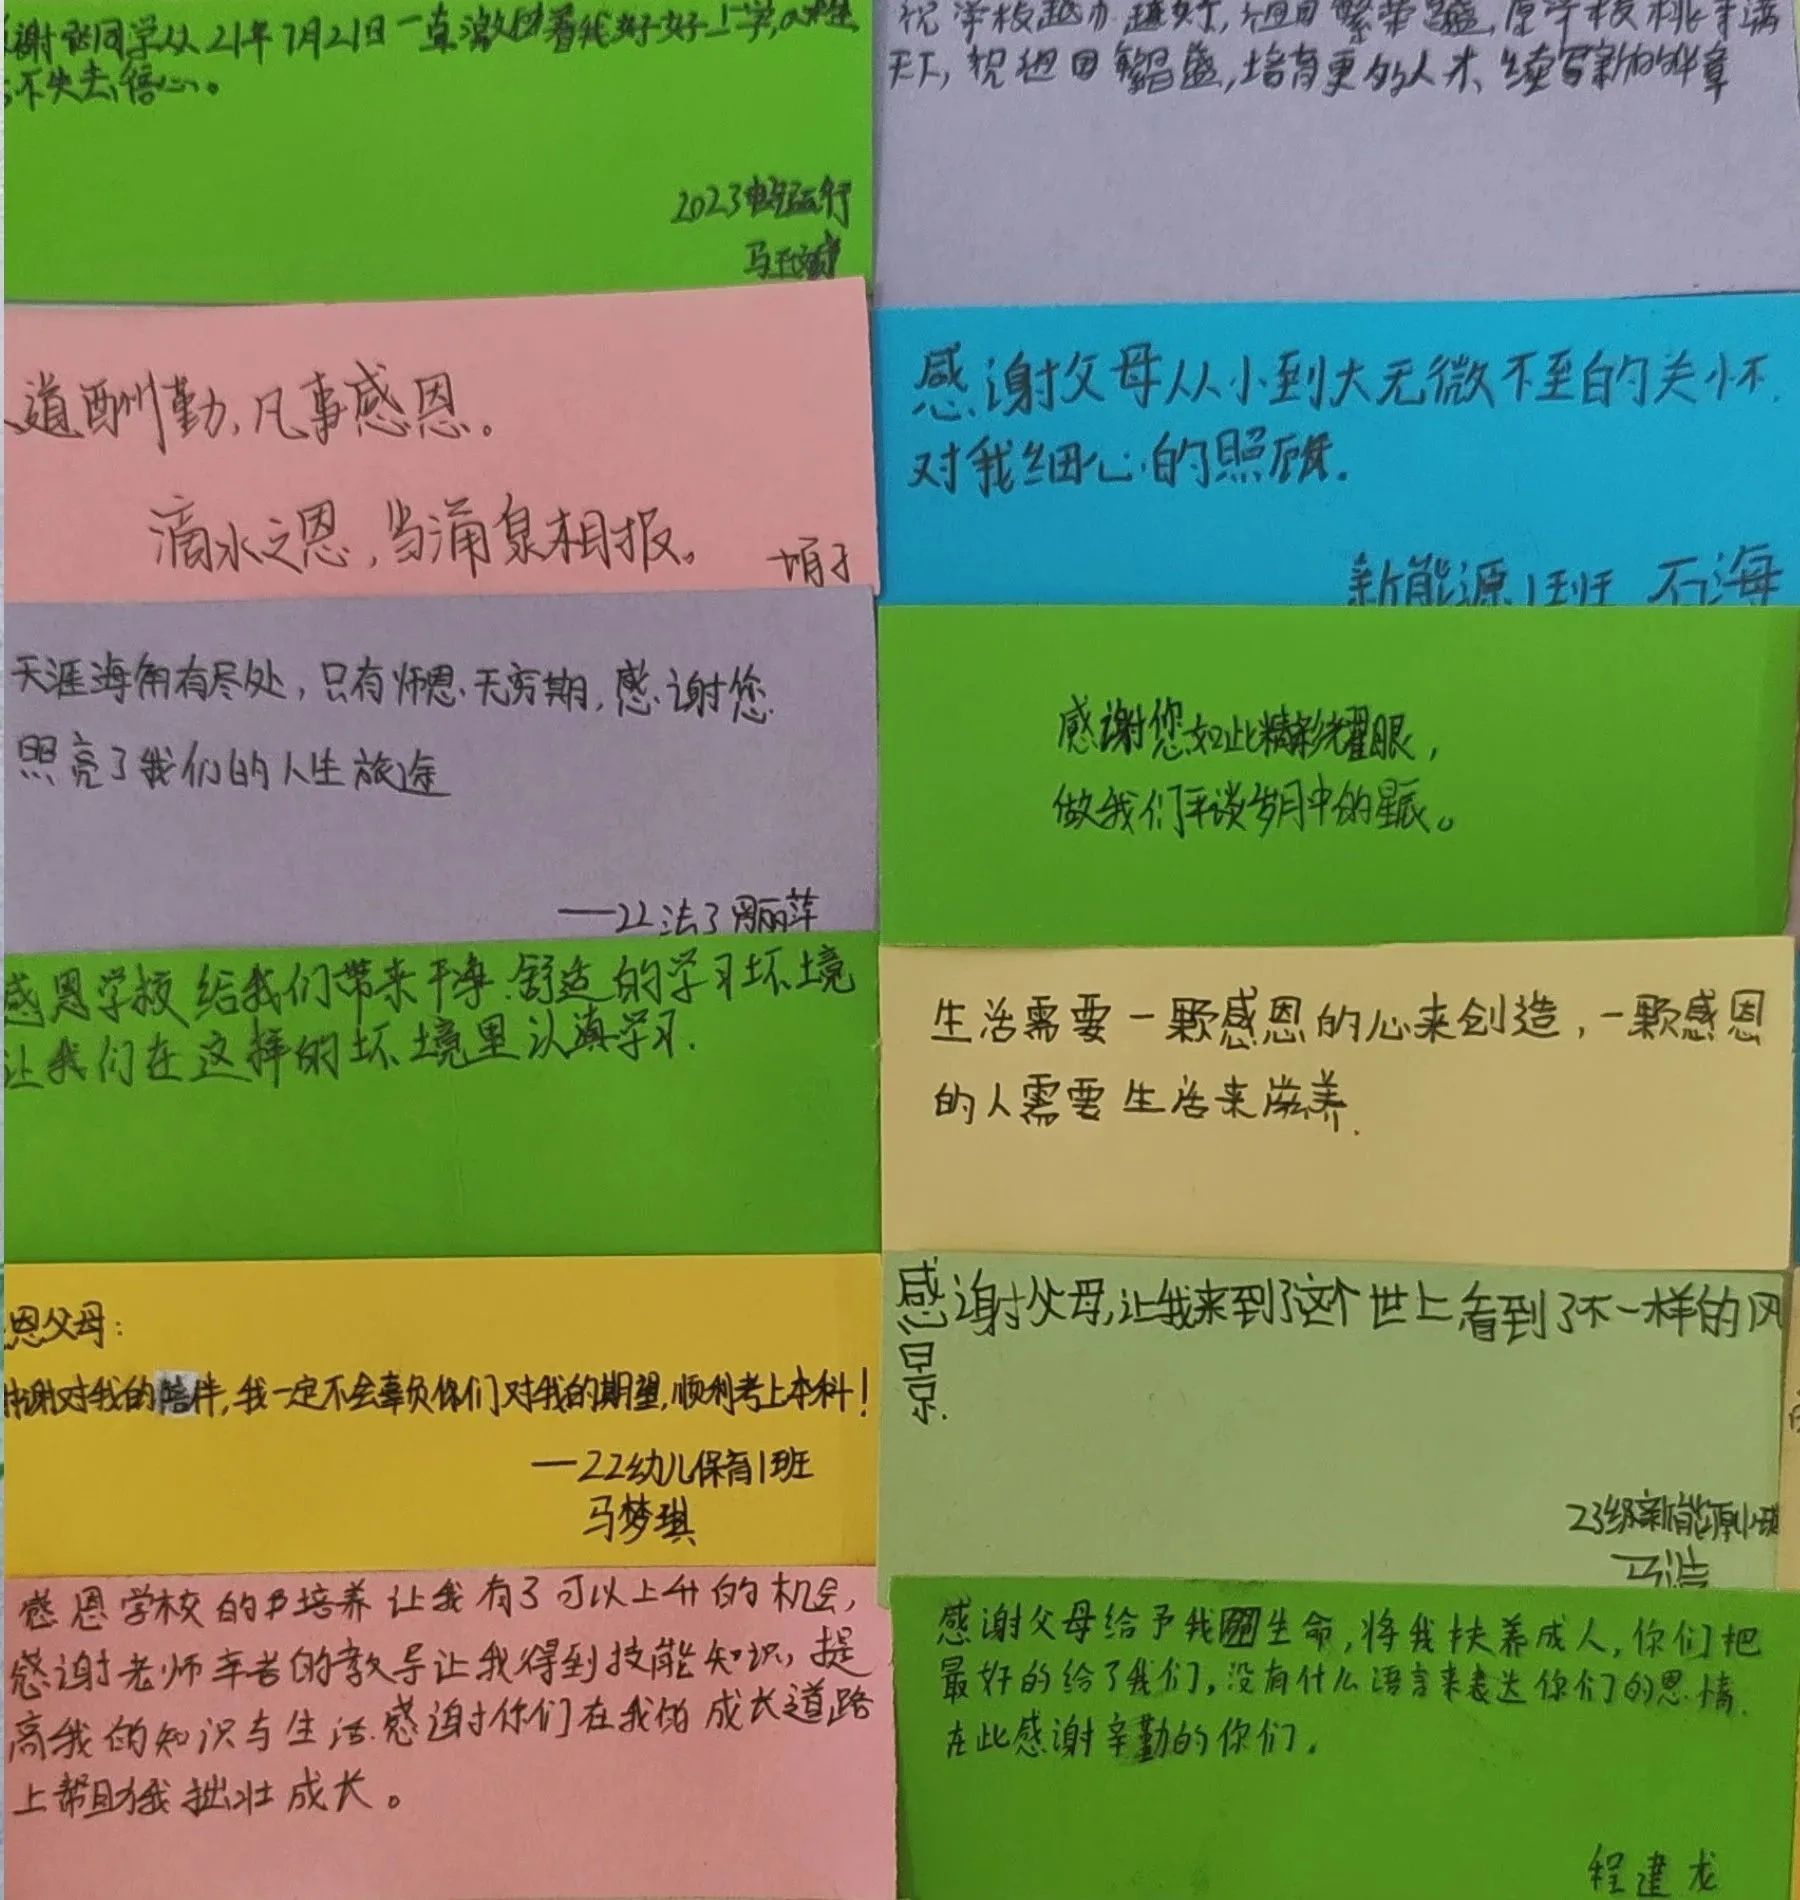 谢同学从21年7月21日一直激励着我好好上学,
不失去信心。
2023
马
祝学校越办越好,祖国繁荣昌盛,愿学校桃李满
天下,祝祖国繁昌盛,培育更多的人才,续写新的华章
道酬勤,凡事感恩。
滴水之恩,当涌泉相报。
感谢父母从小到大无微不至的关怀.
对我细心的照顾.
新能源1班 石海
天涯海角有尽处,只有师恩无穷期,感谢您
照亮了我们的人生旅途
——22法3周丽萍
感谢您如此精彩耀眼,
做我们平谈岁月中的星辰。
感恩学校给我们带来干净.舒适的学习坏境
让我们在这样的坏境里认真学习.
生活需要一颗感恩的心来创造,一颗感恩
的人需要生活来滋养.
恩父母:
谢对我的陪伴,我一定不会辜负你们对我的期望,顺利考上本科!
—22幼儿保育1班
马梦琪
感谢父母,让我来到了这个世上,看到了不一样的风
景.
23级新能源1班
马浩
感恩学校的培养让我有了可以上升的机会,
感谢老师辛苦的教导让我得到技能知识,提
高我的知识与生活.感谢你们在我的成长道路
上帮助我拙壮成长。
感谢父母给予我生命,将我扶养成人,你们把
最好的给了我们,没有什么语言来表达你们的恩情.
在此感谢辛勤的你们.
程建龙